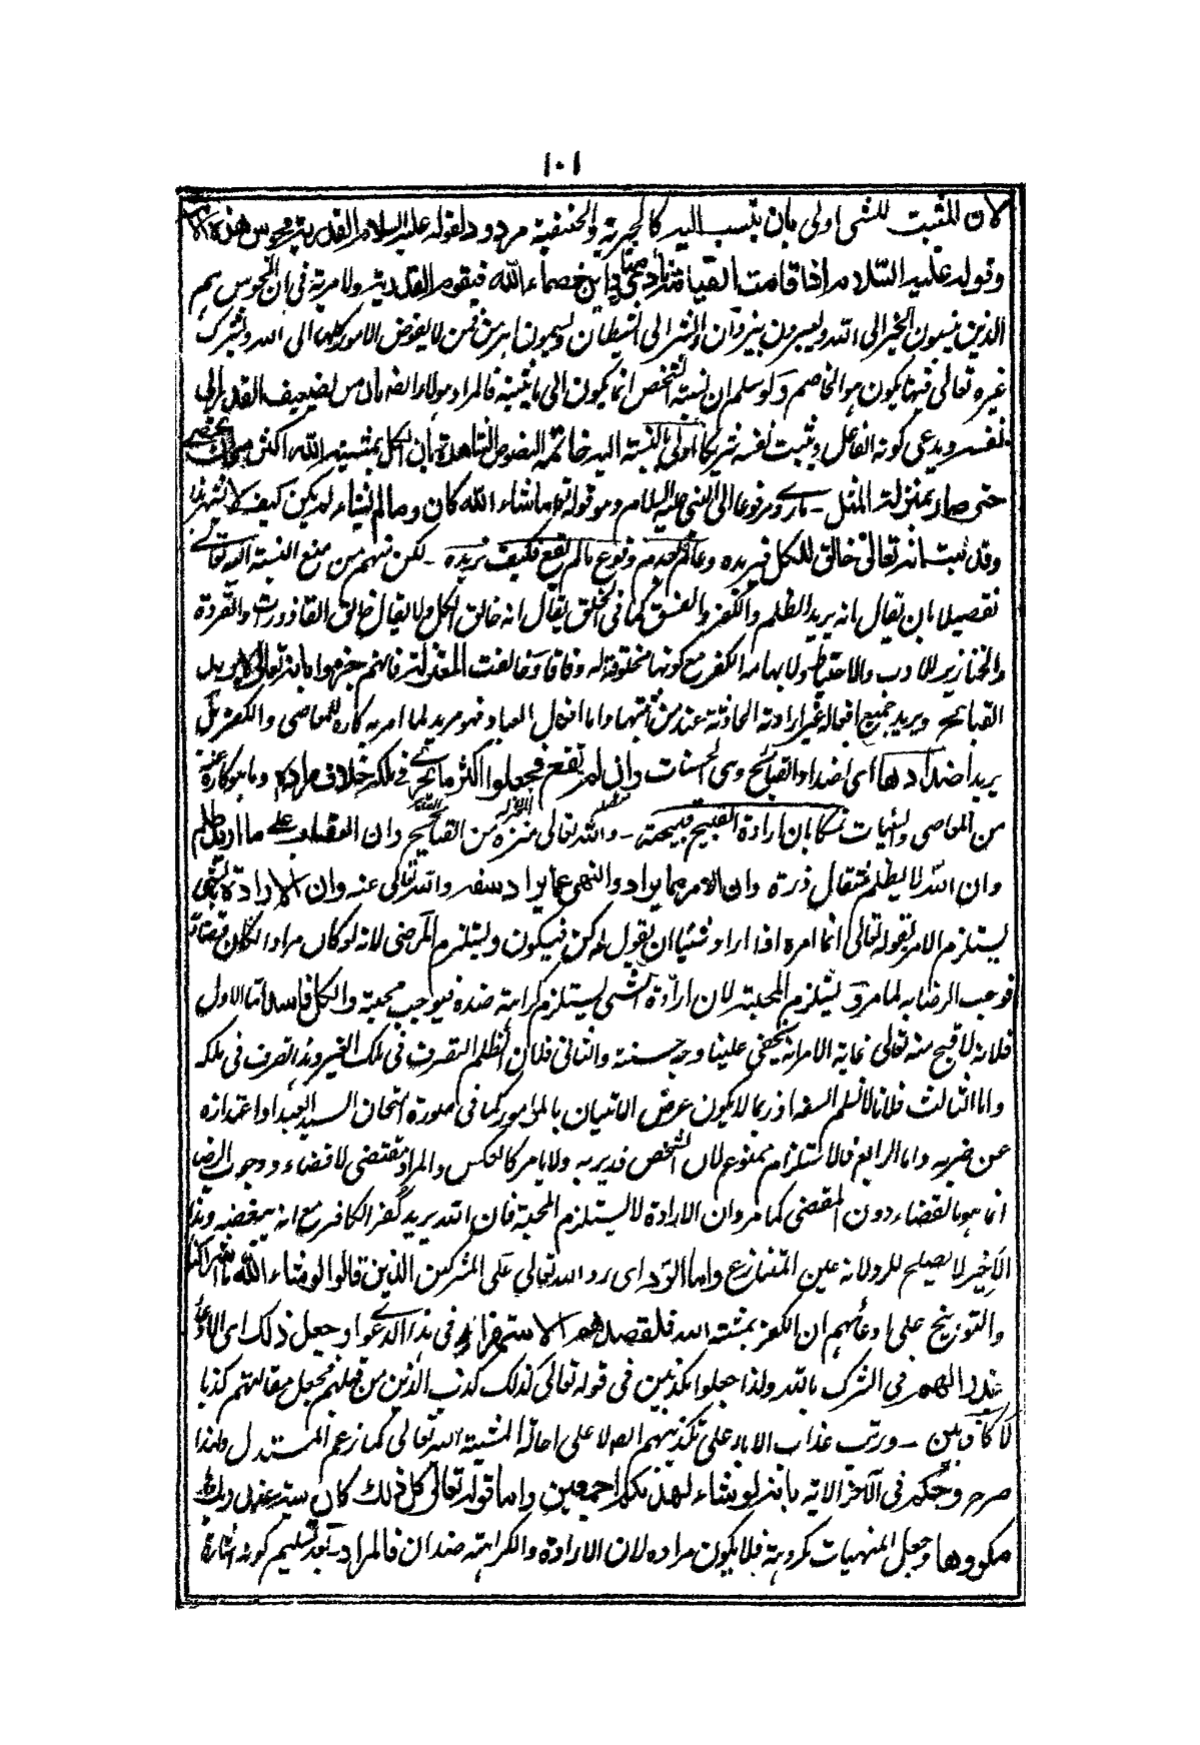 ١٠١
لان المثبت للشئ اولى بان ينسب اليه كالجبرية والحنفية مردود لقوله عليه السلام القدرية مجوس هذه الامة
وقوله عليه السلام اذا قامت القيامة نادى مناد اين خصماء الله فيقوم القدرية ولا مرية فى ان المجوس هم
الذين ينسبون الخير الى الله ويسمون بيزدان والشر الى الشيطان ويسمون اهرمن فمن لا يفوض الامور كلها الى الله ويشرك
غيره تعالى فيها يكون هو المخاصم ولو سلم ان نسبة الشخص انما يكون الى ما يثبته فالمراد هؤلاء ايضا لان من يضيف القدر الى
نفسه ويدعى كونه الفاعل ويثبت نفسه شريكا اولى بالنسبة اليه خاتمة النصوص الشاهدة بان الكل بمشيته الله اكثر من ان تحصى
حتى صار بمنزلة المثل مرفوعا الى النبى عليه السلام وهو قوله ما شاء الله كان وما لم يشاء لم يكن كيف لا
وقد ثبت انه تعالى خالق للكل فيريده وعالم بعدم وقوع مالم يقع فكيف يريده لكن منهم من منع النسبة اليه تعالى
تفصيلا بان يقال انه يريد الظلم والكفر والفسق كما فى الخلق يقال انه خالق الكل ولا يقال خالق القاذورات والقردة
والخنازير للادب والاحتياط ولا بهامه الكفر مع كونها مخلوقة له وفاقا وخالفت المعتزلة فانهم جزموا بانه تعالى لا يريد
القبائح ويريد جميع افعاله غير ارادته الحادثة عند من اثبتها واما افعال العباد فهو مريد لما امر به كاره للمعاصى والكفر بل
يريد اضدادها اى اضداد القبائح وهى الحسنات وان لم تقع فجعلوا اكثر ما يجرى فى ملكه خلاف مراده وما هو كاره عنه
من المعاصى والمنهيات تمسكا بان ارادة القبيح قبيحة والله تعالى منزه من القبائح وان العقاب على ما اريد ظلم
وان الله لا يظلم مثقال ذرة وان الامر بما يراد والنهى عما يراد سفه والله تعالى عنه وان الارادة لشئ
يستلزم الامر لقوله تعالى انما امره اذا اراد شيئا ان يقول له كن فيكون ويستلزم المرضى لانه لو كان مرادا لكان قضائه
فوجب الرضا به لما مر ويستلزم المحبة لان ارادة الشئ يستلزم كراهة ضده فيوجب محبة والكل فاسد اما الاول
فلانه لا قبح منه تعالى غاية الامر انه يخفى علينا وجه حسنه والثانى فلان الظلم التصرف فى ملك الغير وهذا تصرف فى ملكه
واما الثالث فلانا لا نسلم السفه اذ ربما لا يكون غرض الاتيان بالمامور كما فى صورة امتحان السيد العبد او اعتذاره
عن ضربه واما الرابع فالاستلزام ممنوع لان الشخص قد يريد ولا يامر كالعكس والمراد مقتضى لا قضاء ووجوب الرضا
انما هو بالقضاء دون المقضى كما مر وان الارادة لا يستلزم المحبة فان الله يريد كفر الكافر مع انه يبغضه وهذا
الاخير لا يصلح للرد لانه عين المتنازع واما الرد اى رد الله تعالى على المشركين الذين قالوا لو شاء الله ما اشركنا
والتوبيخ على ادعائهم ان الكفر بمشية الله فلقصدهم الاستهزاء فى هذا الدعوى وجعل ذلك اى الادعاء
عذرا لهم فى الشرك بالله ولذا جعلوا مكذبين فى قوله تعالى كذلك كذب الذين من قبلهم فجعل مقالتهم كذبا
لا كاذبين ورتب عذاب الاباء على تكذيبهم لا على احالة المشية الله تعالى كما زعم المستدل ولهذا
صرح وحكم فى الآخر الاية بانه لو شاء لهداكم اجمعين واما قوله تعالى كل ذلك كان سيئه عند ربك
مكروها وجعل المنهيات مكروهة فلا يكون مراده لان الارادة والكراهة ضدان فالمراد بعد تسليم كونه اشارة